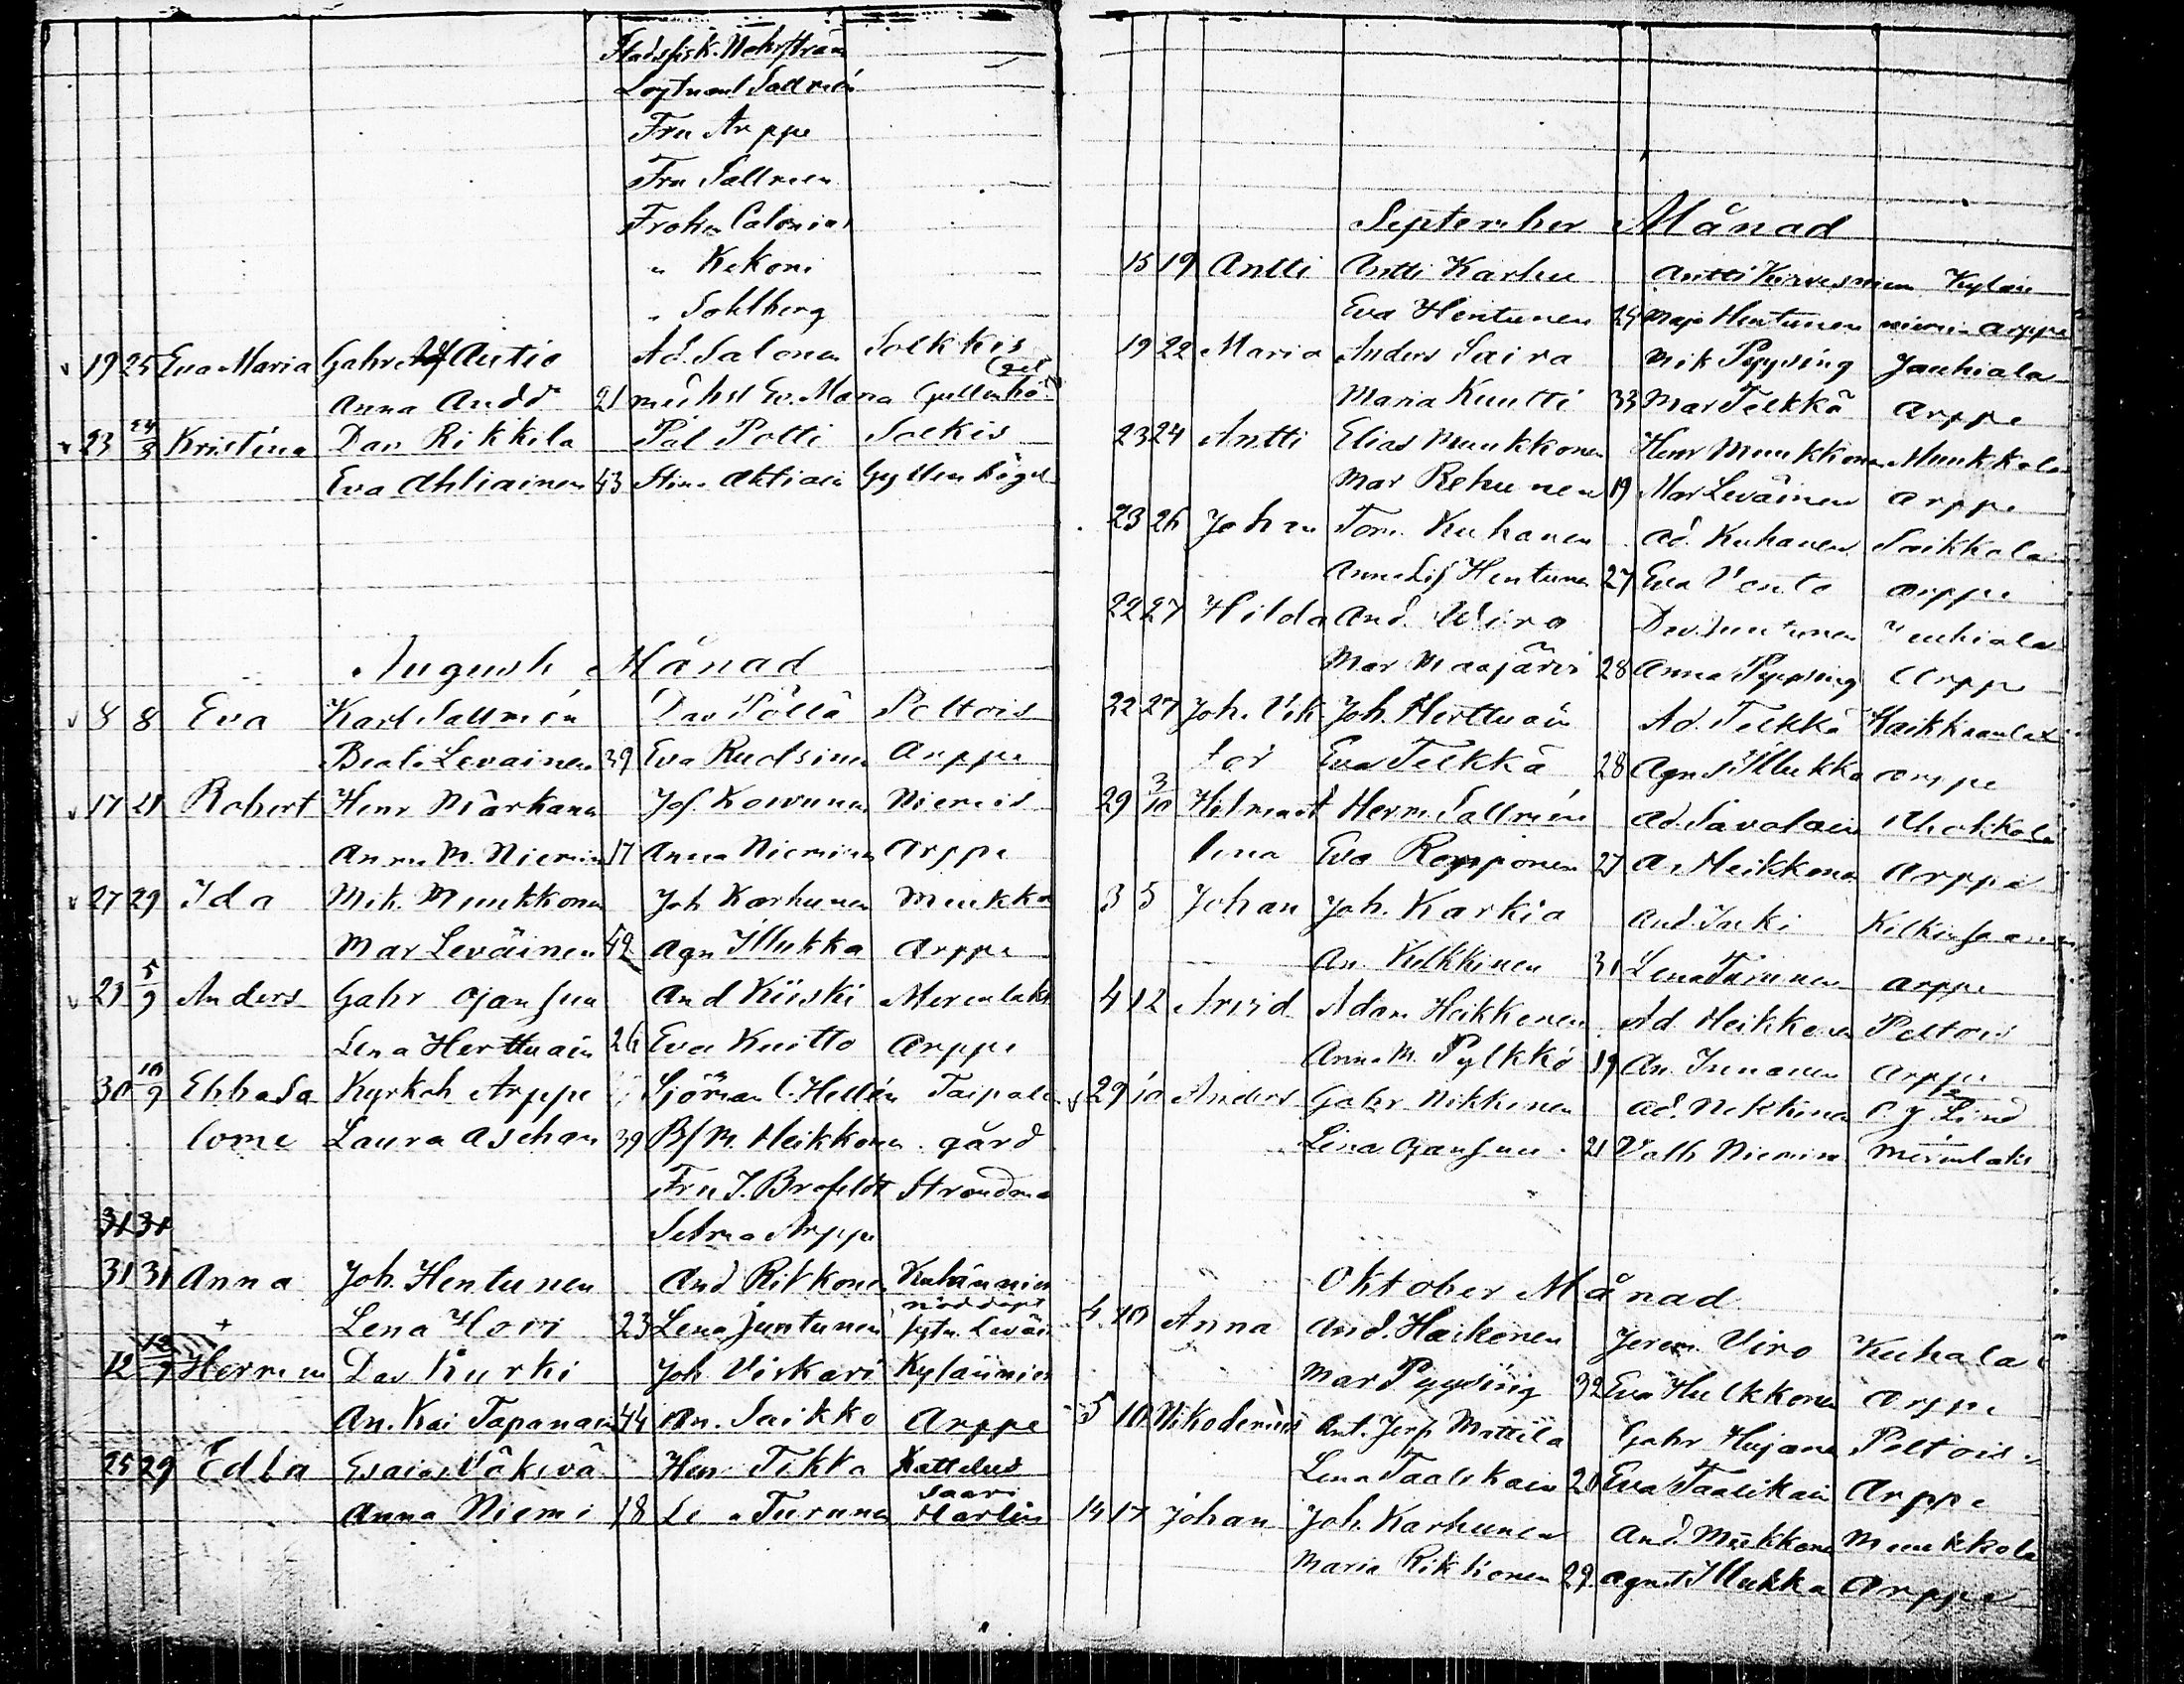 Stadsfisk. Wahrström
Loytnant Sallmén
Fru Arppe
Fru Sallmen
Froken Calonius
" Kekoni
" Sohlberg
19 25 Eva Maria Gabr Autio Ad. Salonen Solkkis
Anna Andd 21 Ev. Maria Gyllenbö
23 24/8 Kristina Dav Rikkila Pål Potti Solkis
Eva Ahliainen 43 Stina Aktiain Gyllenbögel
Augusti Månad
8 8 Eva Karl Sallmén Dav Pöllä Peltois
Beata Levainen 39 Eva Rudsinen Arppe
17 21 Robert Henr Markanen Jos. Korvunen Niemis
Anna M. Nieminen 17 Anna Nieminen Arppe
27 29 Ida Mik. Muukkonen Joh Karhunen Muukka
Mar Leväinen 42 Agn Illukka Arppe
29 5/9 Anders Gabr Ojansuu And Kiiski Merenlaks
Lena Herttuain 26 Eva Kuitto Arppe
30 10/9 Ebba Sa Kyrkoh Arppe Sjöman C. Hellén Taipale
lome Laura Aschan 39 M. Heikkonen gård
Fru J. Brofeldt Strandma
Selma Arppe
31 31
31 31 Anna Joh. Hentunen And Rikkonen Kuhänniem
nöddöpt
Lena Hovi 23 Lena Juntunen Leväi
12 12/9 Herman Dav Kurki Joh Viskari Kylänniem
An. Kai Tapanain 44 An. Saikko Arppe
25 29 Edla Esaias Väkevä Hen Tikka Kattelus
saari
Anna Niemi 18 Le a Turunen Harlin
September Månad
15 19 Antti Antti Karhu Antti Kirvesmien Kylän
Eva Hentunen 24 Maja Hentunen niemi Arppe
19 22 Maria Anders Saira Nik Pyysing Jauhiala
Maria Kuutti 33 Mar Telkkä Arppe
23 24 Antti Elias Muukkonen Henr Muukkonen Muukkola
Mar Rehunen 19 Mar Leväinen Arppe
23 26 Johan Tom. Kuhanen Ad. Kuhanen Saikkola
Anna Lis Hentunen 27 Eva Vento Arppe
22 27 Hilda And. Wiro Dav. Juntunen Jauhiala
Mar Maajärvi 28 Anna Pyysing Arppe
22 27 Joh. Vik Joh. Herttuain Ad. Telkkä Haikkaanlax
tor Eva Telkkä 28 Agnes Illukka Arppe
29 3/10 Helmast Herm. Sallmén Ad. Savolain Uhokkola
iina Eva Ropponen 27 A. Heikkonen Arppe
3 5 Johan Joh. Karkia And. Inki Kilkinsaaren
An. Kulkkinen 31 Lena Turunen Arppe
4 12 Arvid Adam Heikkonen Ad Heikkonen Peltois
Anna M. Pylkkö 19 An. Innanen Arppe
29 10 Anders Gabr Nikkinen Ad. Nikkinen P. J. Lind
Lena Ojansuu 21 Valb Nieminen Merenlaks
Oktober Månad
4 10 Anna And. Haikonen Jerem. Viro Kuhala
Mar Pyysing 32 Eva Hulkkonen Arppe
5 10 Nikodemus Ant. Jerf Mattila Gabr Hujanen Peltois
Lena Taalikain 20 Eva Taalikain Arppe
14 17 Johan Joh. Karhunen And. Mukkonen Muukkola
Maria Rikkonen 29 Agnes Illukka Arppe